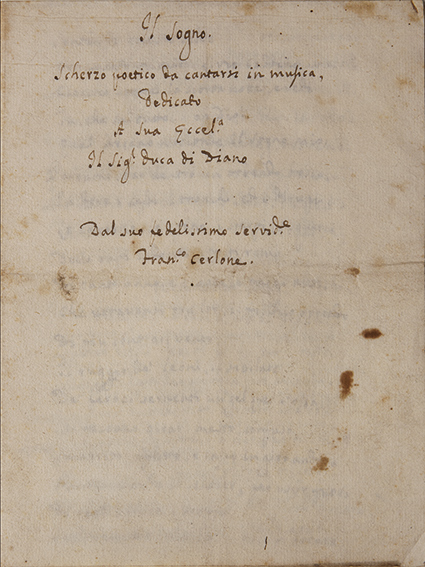 Il Sogno.
Scherzo poetico da cantarsi in musica,
Dedicato
A Sua Eccel.a
Il Sig.r Duca di Diano
Dal suo fedelissimo servid.e
Fran.o Cerlone.